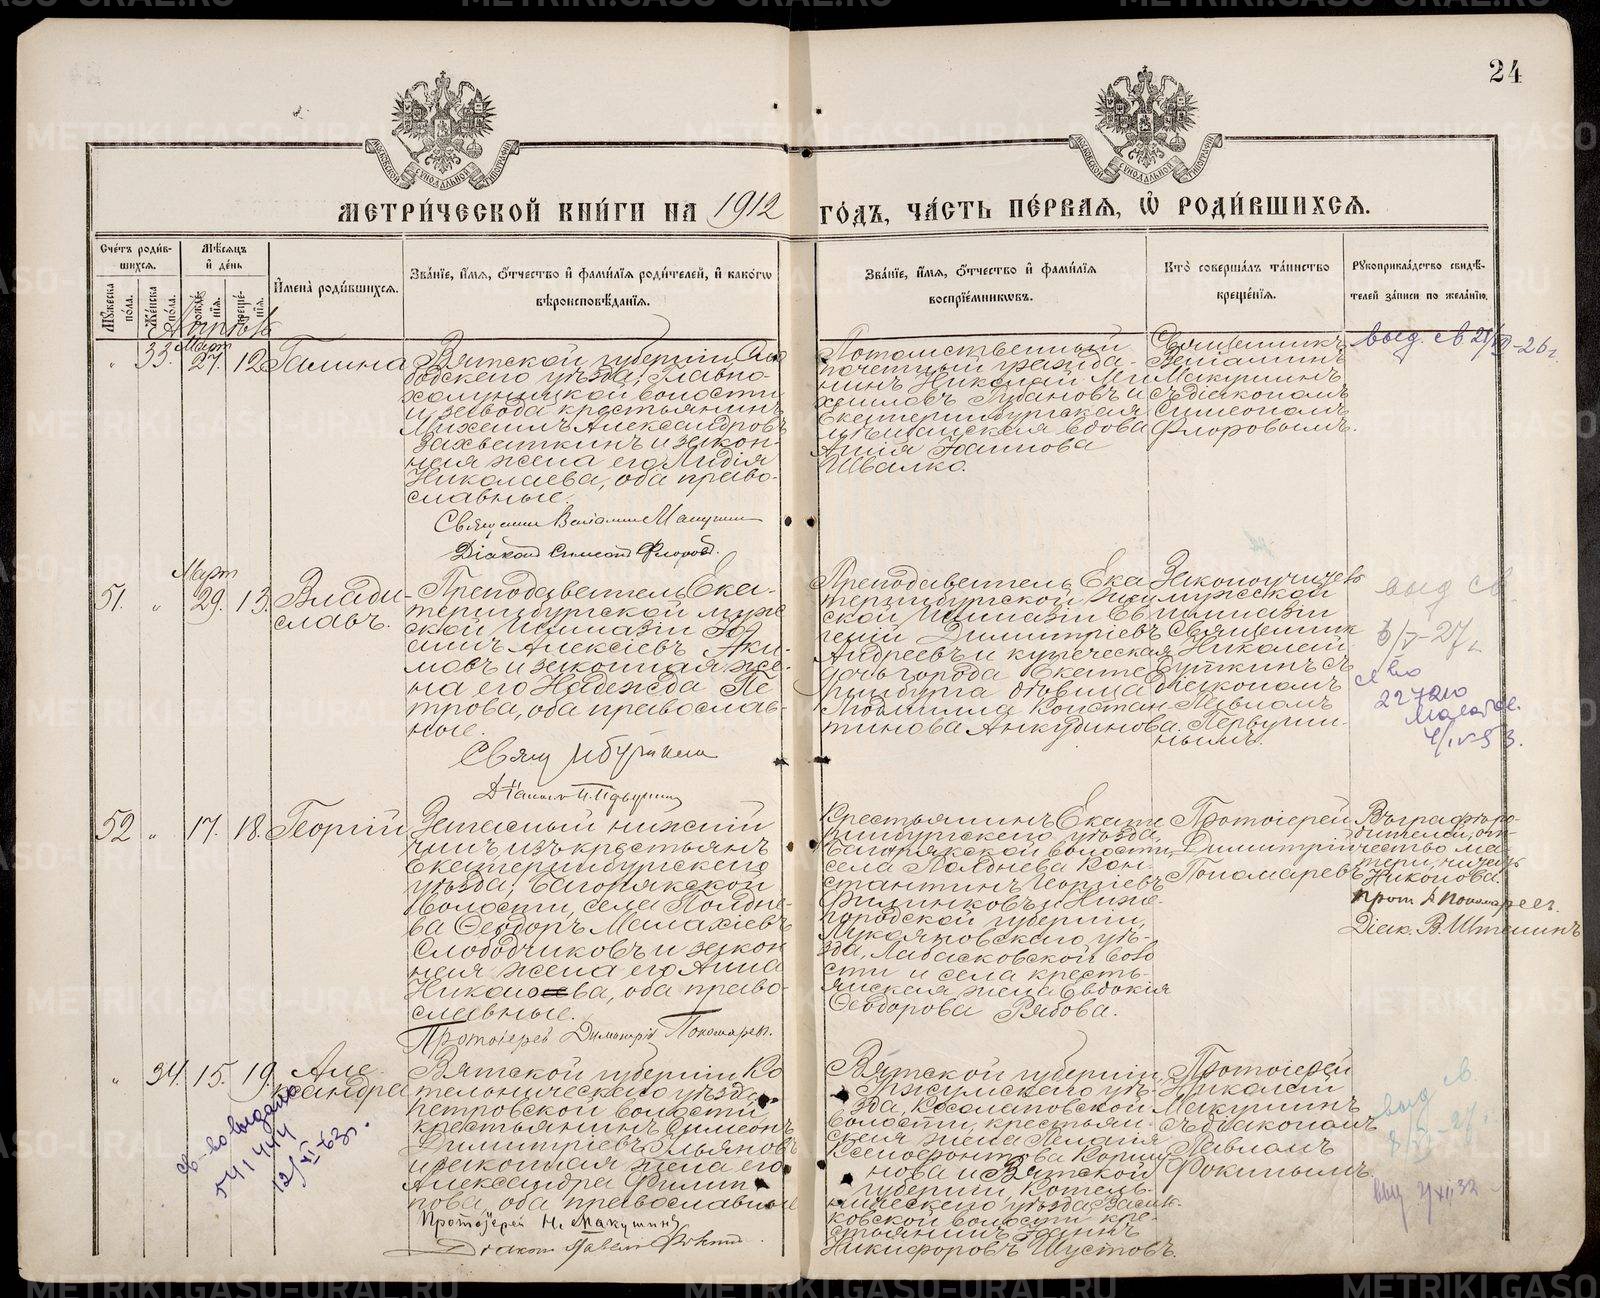 24
МЕТРИ́ЧЕСКОЙ КНИ́ГИ НА 1912 ГО́ДЪ, ЧА́СТЬ ПЕ́РВАЯ, Ѡ РОДИ́ВШИХСЯ.
Сче́тъ роди́вшихся.
Му́жеска по́ла.
Же́нска по́ла.
Мѣ́сяцъ и҆ де́нь
рожде́нїя.
креще́нїя.
И҆мена̀ роди́вшихся.
Зва́нїе, и҆́мя, ѻ҆́тчество и҆ фами́лїя роди́телей, и҆ како́гѡ
вѣроисповѣ́данїя.
Зва́нїе, и҆́мя, ѻ҆́тчество и҆ фами́лїя
воспрїе́мникѡвъ.
Кто̀ соверша́лъ та́инство
креще́нїя.
Рꙋкоприкла́дство свидѣ́-
телей за́писи по жела́нїю.
„ 33. Март 27. 12. Галина
Вятской губернии Сло
бодского уѣзда, Главно-
холуницкой волости
и завода крестьянинъ
Михаилъ Александровъ
Захваткинъ и закон-
ная жена его Лидія
Николаева, оба право-
славные.
Діаконъ Симеонъ Флоровъ.
Потомственный
почетный гражда-
нинъ Николай Ми
хаиловъ Губановъ и
Екатеринбургская
мѣщанская вдова
Анна Іоаннова
Швалко.
Священникъ
Веніаминъ
Макушинъ
съ діакономъ
Симеономъ
Флоровымъ.
51. „ Март 29. 13. Влади-
славъ.
Преподаватель Ека-
теринбургской муж
ской Гимназіи Іоа
ннъ Алексіевъ Аки-
мовъ и законная же-
на его Надежда Пе
трова, оба православ-
ные.
Преподаватель Ека
теринбургской жен
ской Гимназіи Ев
геній Димитріевъ
Андреевъ и купеческая
дочь города Екате
ринбурга дѣвица
Людмила Констан
тинова Анкудинова.
Законоучитель
мужской
гимназіи
Священник
Николай
Буткинъ съ
діакономъ
Павломъ
Первуши-
нымъ.
выд св.
22720
52 „ 17. 18. Георгій
Запасный нижній
чинъ изъ крестьянъ
Екатеринбургскаго
уѣзда, Багарякской
волости, села Полдне-
ва Ѳеодоръ Малахіевъ
Слободчиковъ и закон
ная жена его Анна
Никонова, оба право-
славные.
Протоіерей Димитрій Пономаревъ.
Крестьянинъ Екате
ринбургскаго уѣзда,
Багарякской волости,
села Полднева Кон-
стантинъ Георгіевъ
Филинковъ и Ниже-
городской губерніи,
Лукояновскаго уѣ-
зда, Лабасковской воло
сти и села кресть-
янская жена Евдокія
Ѳеодорова Рябова.
Протоіерей
Димитрій
Пономаревъ
Въ графѣ ро-
дителей, от-
чество ма-
тери, читать
Никонова.
прот Д Пономарев.
Діак. В. Шталинъ
„ 34. 15. 19. Але-
ксандра
св-во выдано
541444
12/XI-63г.
Вятской губерніи Ко
тельническаго уѣзда,
петровской волости
крестьянинъ Симеонъ
Димитріевъ Ульяновъ
и законная жена его
Александра Филип-
пова, оба православные
Протоіерей Н. Макушинъ
Діаконъ Павелъ Фокинъ
Вятской губерніи,
Уржумскаго уѣ-
зда, Косолаповской
волости, крестьян-
ская жена Пелагія
Ксенофонтова Корши
нова и Вятской
губерніи, Котель-
ническаго уѣзда Васильковской волости кре-
стьянинъ Іоаннъ
Никифоровъ Шустовъ.
Протоіерей
Николай
Макушинъ
съ діакономъ
Павломъ
Фокинымъ.